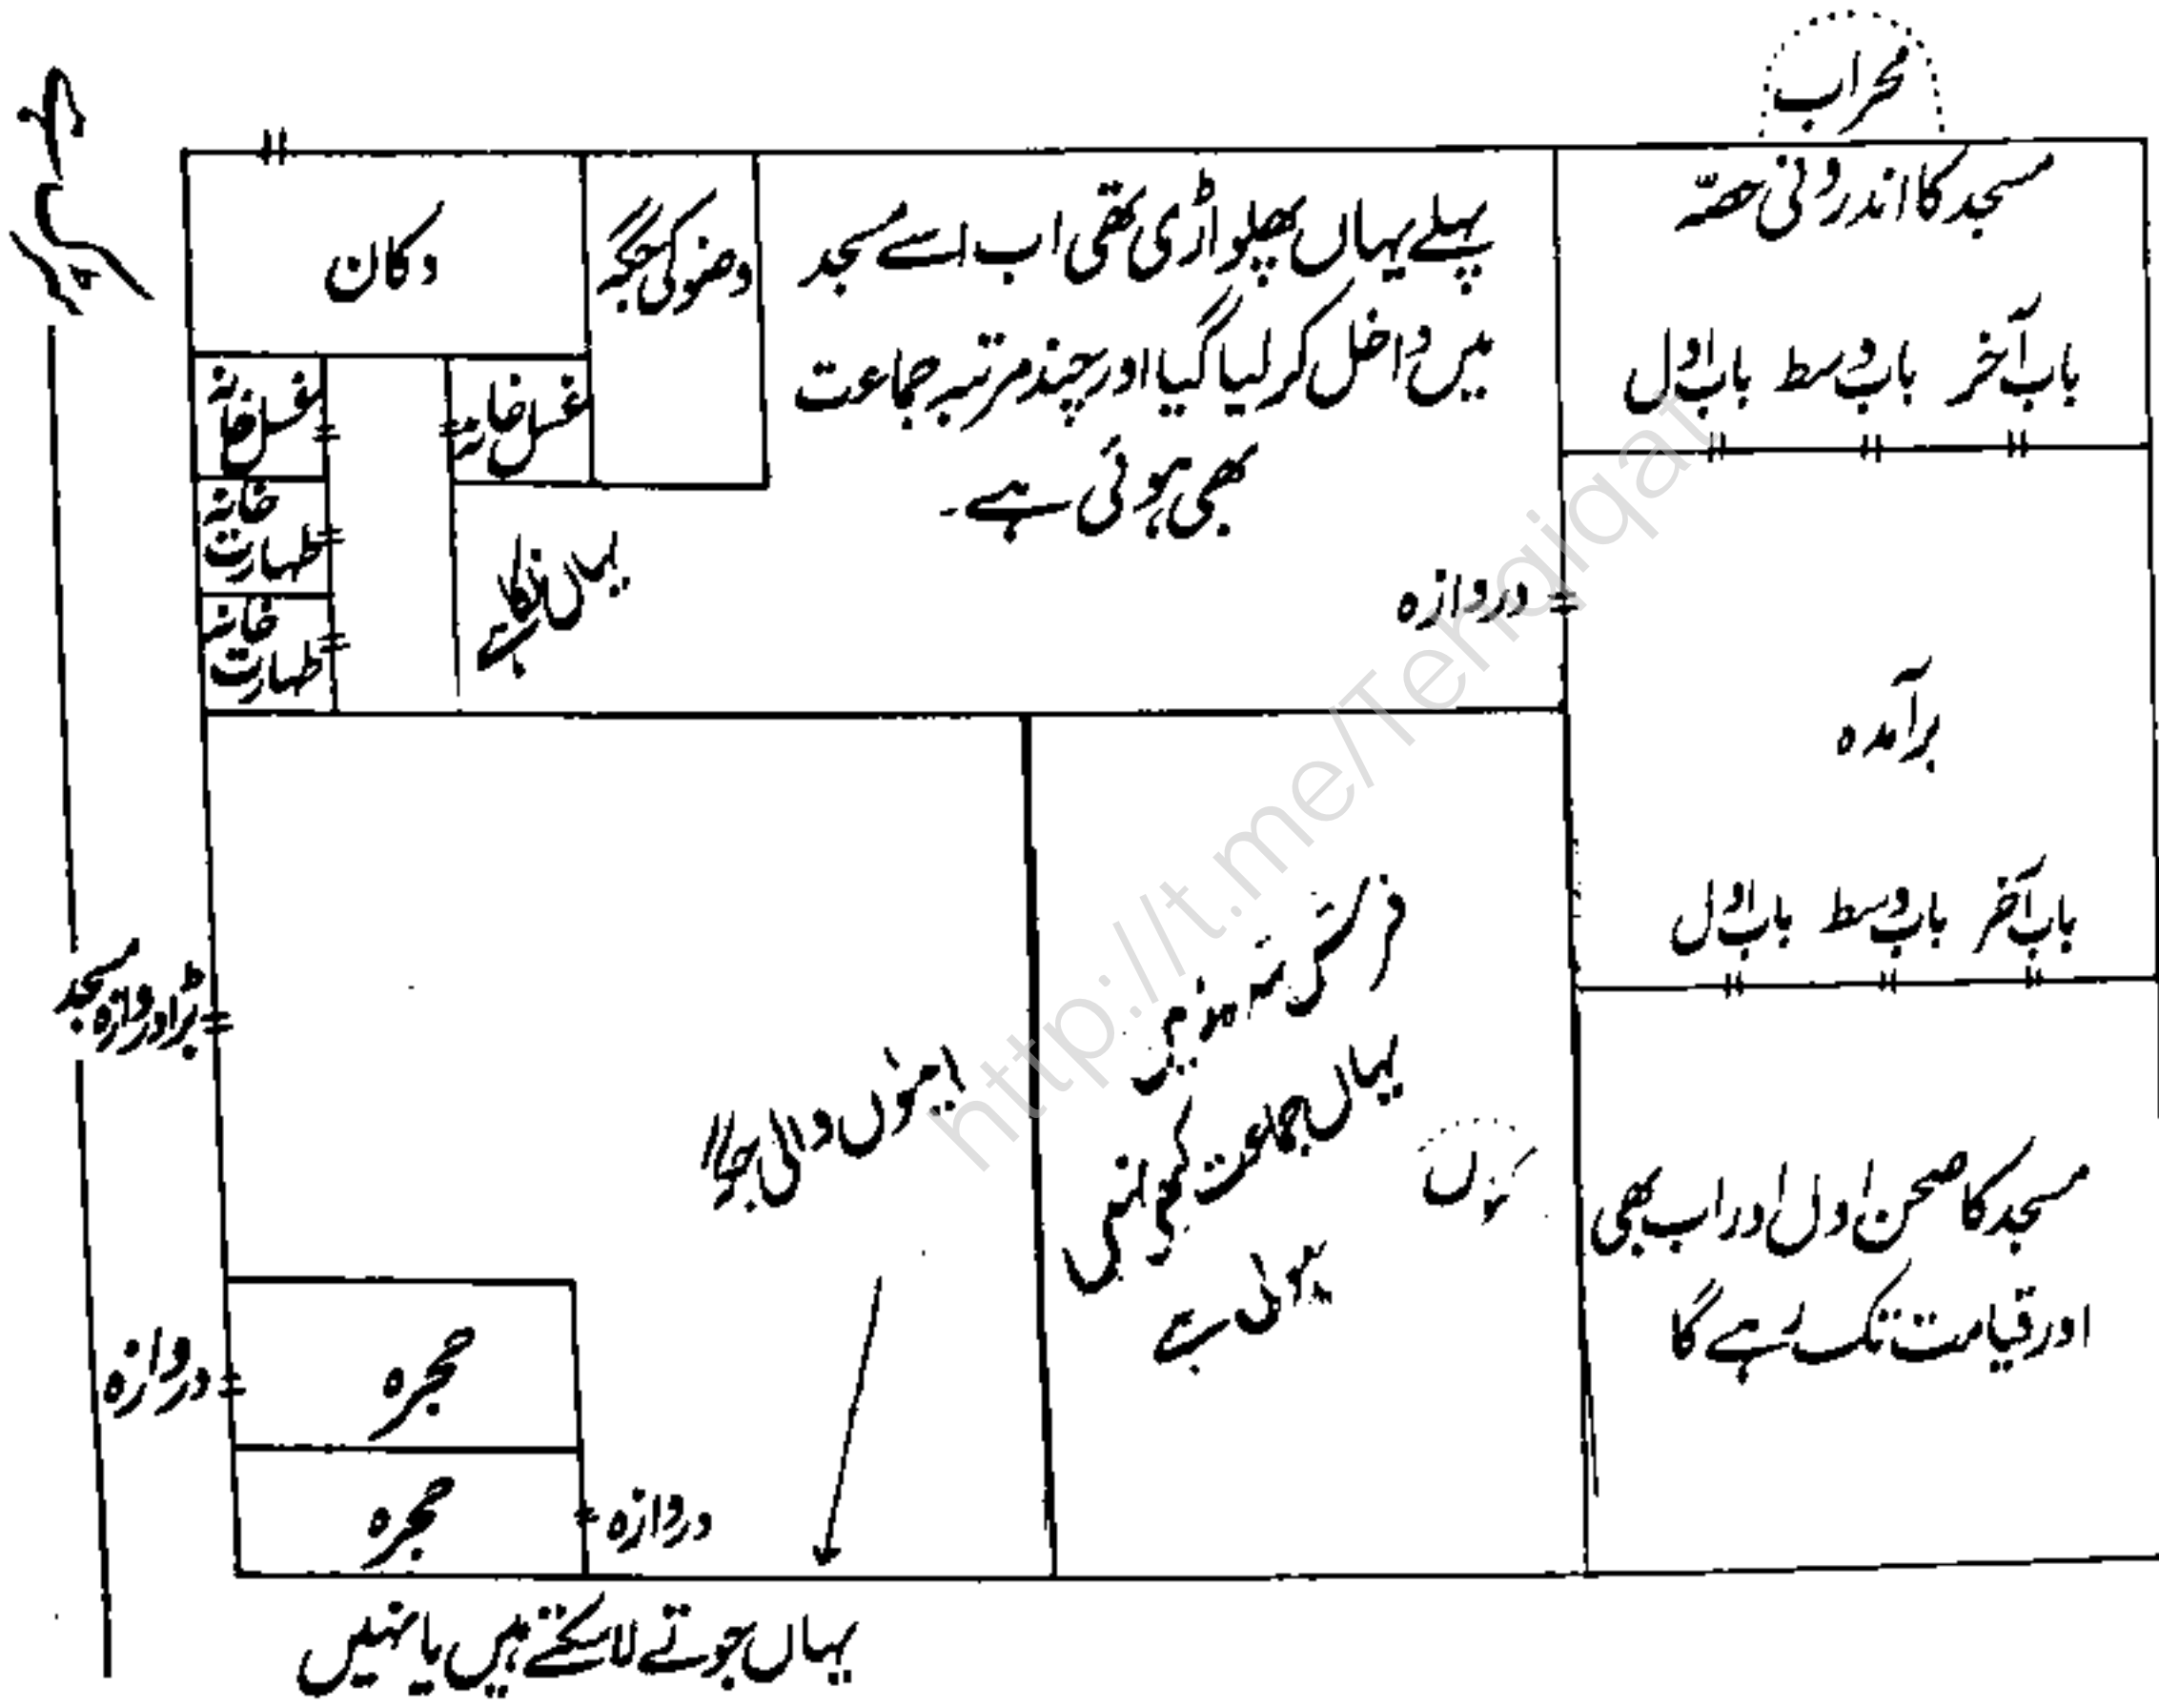 محراب
مسجد کا اندرونی حصّہ
باب آخر باب وسط باب اول
برآمدہ
باب آخر باب وسط باب اول
مسجد کا صحن اول اور اب بھی
اور قیامت تک رہے گا
پہلے یہاں پھلواڑی تھی اب اسے مسجد
میں داخل کر لیا گیا اور چند مرتبہ جماعت
بھی ہوئی ہے۔
دروازہ
وضو کی جگہ
دکان
غسل خانہ
غسل خانہ
خانہ
طہارت
خانہ
طہارت
یہاں نلکا ہے
فرش
یہاں جماعت کبھی نہیں
ہوئی ہے
اینٹوں والی جگہ
بڑا دروازہ مسجد
حجرہ
دروازہ
حجرہ
دروازہ
یہاں جوتے لا سکتے ہیں یا نہیں
http://t.me/Tehqiqat